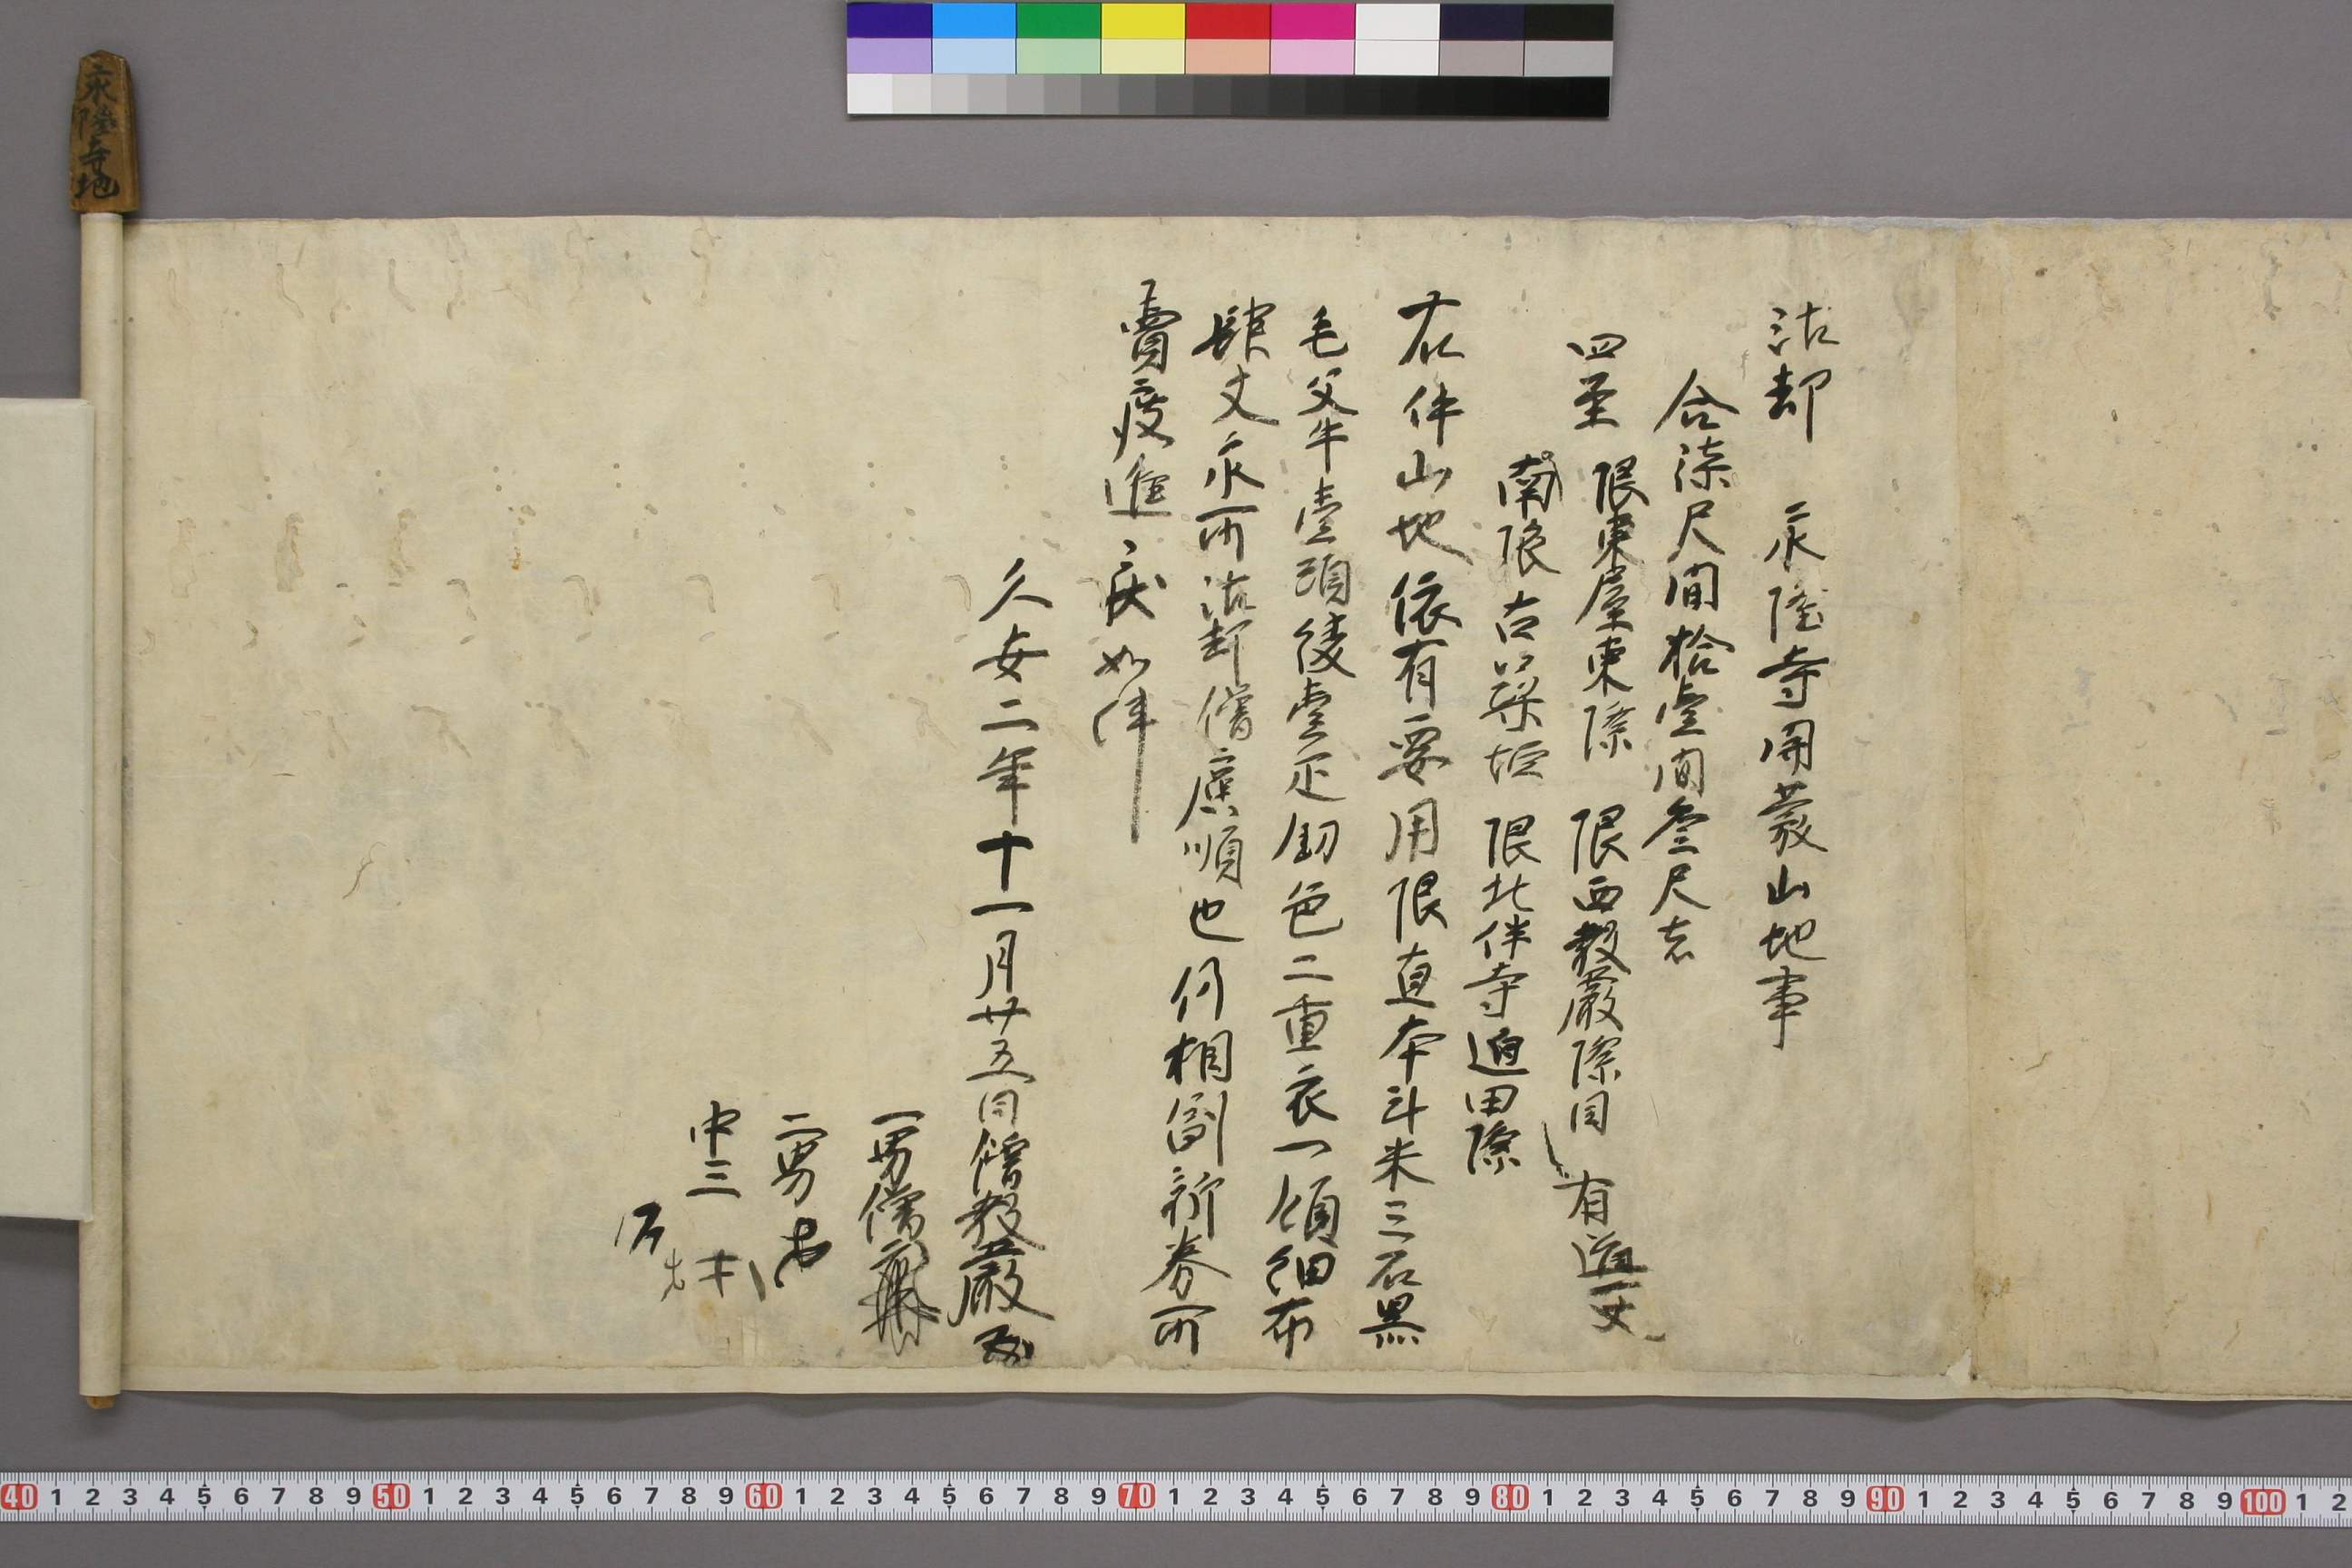 沽却　永隆寺開發山地事
合漆尺間拾壹間叁尺者
四至　限東屋東際　限西敎嚴際目　有道一丈
南限古築垣　限北伴寺道田際
右件山地依有要用限直本斗米三石黑
毛父牛壹頭綾壹疋鈍色二重衣一領細布
肆丈永所沽却僧應順也仍相副新券所
賣渡進之狀如件
久安二年十一月廿五日僧敎嚴
一男僧
二男
中三
永隆寺地
40 1 2 3 4 5 6 7 8 9 50 1 2 3 4 5 6 7 8 9 60 1 2 3 4 5 6 7 8 9 70 1 2 3 4 5 6 7 8 9 80 1 2 3 4 5 6 7 8 9 90 1 2 3 4 5 6 7 8 9 100 1 2